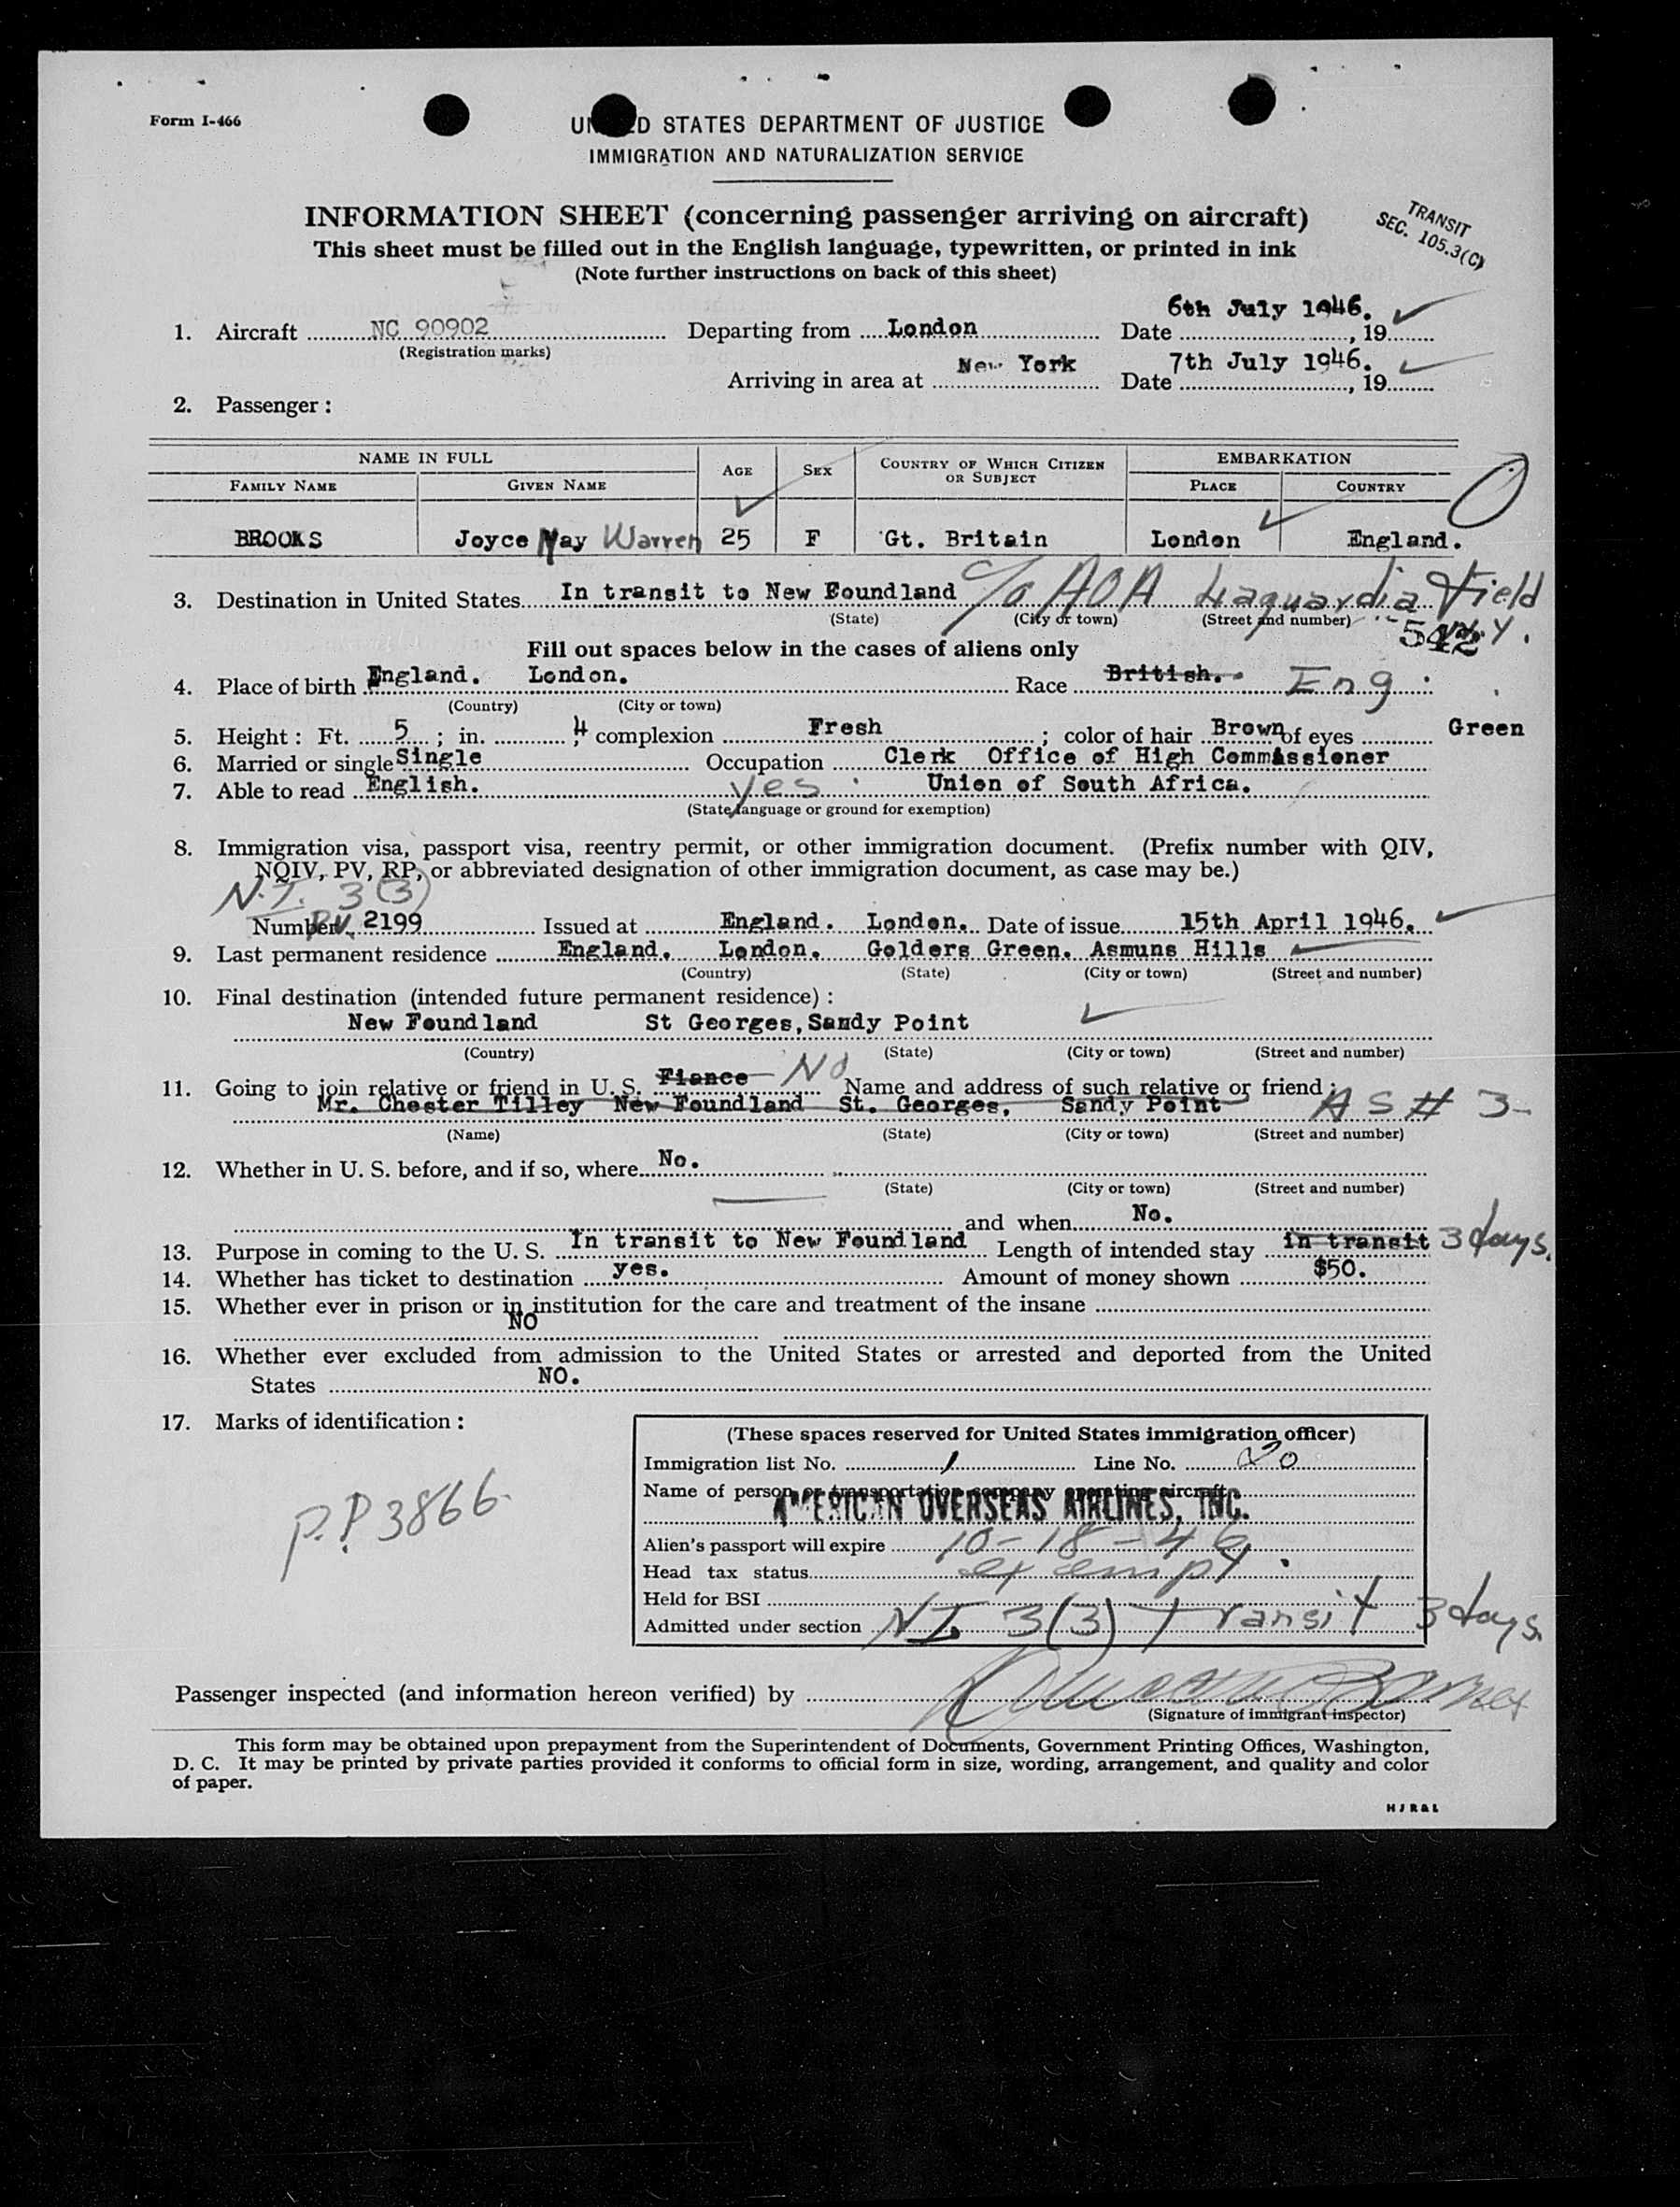 Form I-466
UNITED STATES DEPARTMENT OF JUSTICE
IMMIGRATION AND NATURALIZATION SERVICE
INFORMATION SHEET (concerning passenger arriving on aircraft)
TRANSIT
SEC. 105.3(C)
This sheet must be filled out in the English language, typewritten, or printed in ink
(Note further instructions on back of this sheet)
6th July 1946.
1. Aircraft NC 90902 Departing from London Date , 19
(Registration marks)
New York 7th July 1946.
Arriving in area at Date , 19
2. Passenger :
NAME IN FULL AGE SEX COUNTRY OF WHICH CITIZEN OR SUBJECT EMBARKATION
FAMILY NAME GIVEN NAME PLACE COUNTRY
BROOKS Joyce May Warren 25 F Gt. Britain London England.
3. Destination in United States In transit to New Foundland c/o AOA Laguardia Field
(State) (City or town) (Street and number) N.Y.
542
Fill out spaces below in the cases of aliens only
4. Place of birth England. London. Race British. Eng
(Country) (City or town)
5. Height : Ft. 5 ; in. 4 ; complexion Fresh ; color of hair Brown of eyes Green
6. Married or single Single Occupation Clerk Office of High Commissioner
7. Able to read English. yes Union of South Africa.
(State language or ground for exemption)
8. Immigration visa, passport visa, reentry permit, or other immigration document. (Prefix number with QIV,
NQIV, PV, RP, or abbreviated designation of other immigration document, as case may be.)
N.I. 3(3)
Number P.V. 2199 Issued at England. London. Date of issue 15th April 1946.
9. Last permanent residence England. London. Golders Green. Asmuns Hills
(Country) (State) (City or town) (Street and number)
10. Final destination (intended future permanent residence) :
New Foundland St Georges, Sandy Point
(Country) (State) (City or town) (Street and number)
11. Going to join relative or friend in U. S. Fiance No Name and address of such relative or friend :
Mr. Chester Tilley New Foundland St. Georges, Sandy Point AS # 3
(Name) (State) (City or town) (Street and number)
12. Whether in U. S. before, and if so, where No.
(State) (City or town) (Street and number)
and when No.
13. Purpose in coming to the U. S. In transit to New Foundland Length of intended stay in transit 3 days.
14. Whether has ticket to destination yes. Amount of money shown $50.
15. Whether ever in prison or in institution for the care and treatment of the insane
NO
16. Whether ever excluded from admission to the United States or arrested and deported from the United
States NO.
17. Marks of identification :
P.P. 3866
(These spaces reserved for United States immigration officer)
Immigration list No. 1 Line No. 20
Name of person or transportation company operating aircraft
AMERICAN OVERSEAS AIRLINES, INC.
Alien's passport will expire 10-18-46
Head tax status exempt
Held for BSI
Admitted under section NI 3(3) Transit 3 days.
Passenger inspected (and information hereon verified) by
(Signature of immigrant inspector)
This form may be obtained upon prepayment from the Superintendent of Documents, Government Printing Offices, Washington,
D. C. It may be printed by private parties provided it conforms to official form in size, wording, arrangement, and quality and color
of paper.
HJR&L